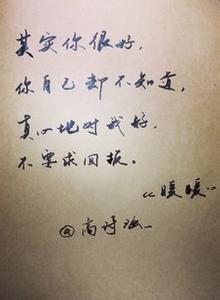 其实你很好，
你自己却不知道，
真心地对我好，
不要求回报。
《暖暖》
@高诗